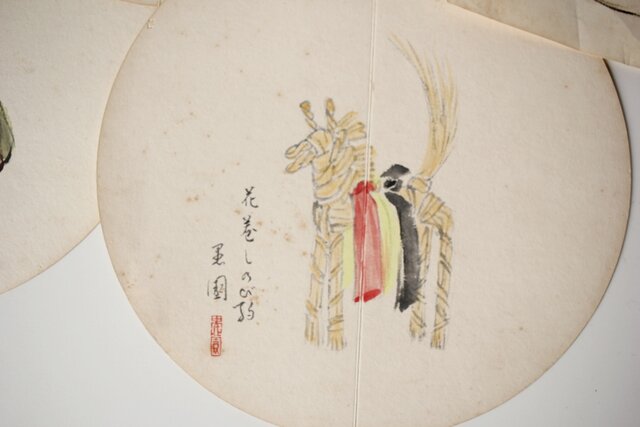 花巻しのび駒
園